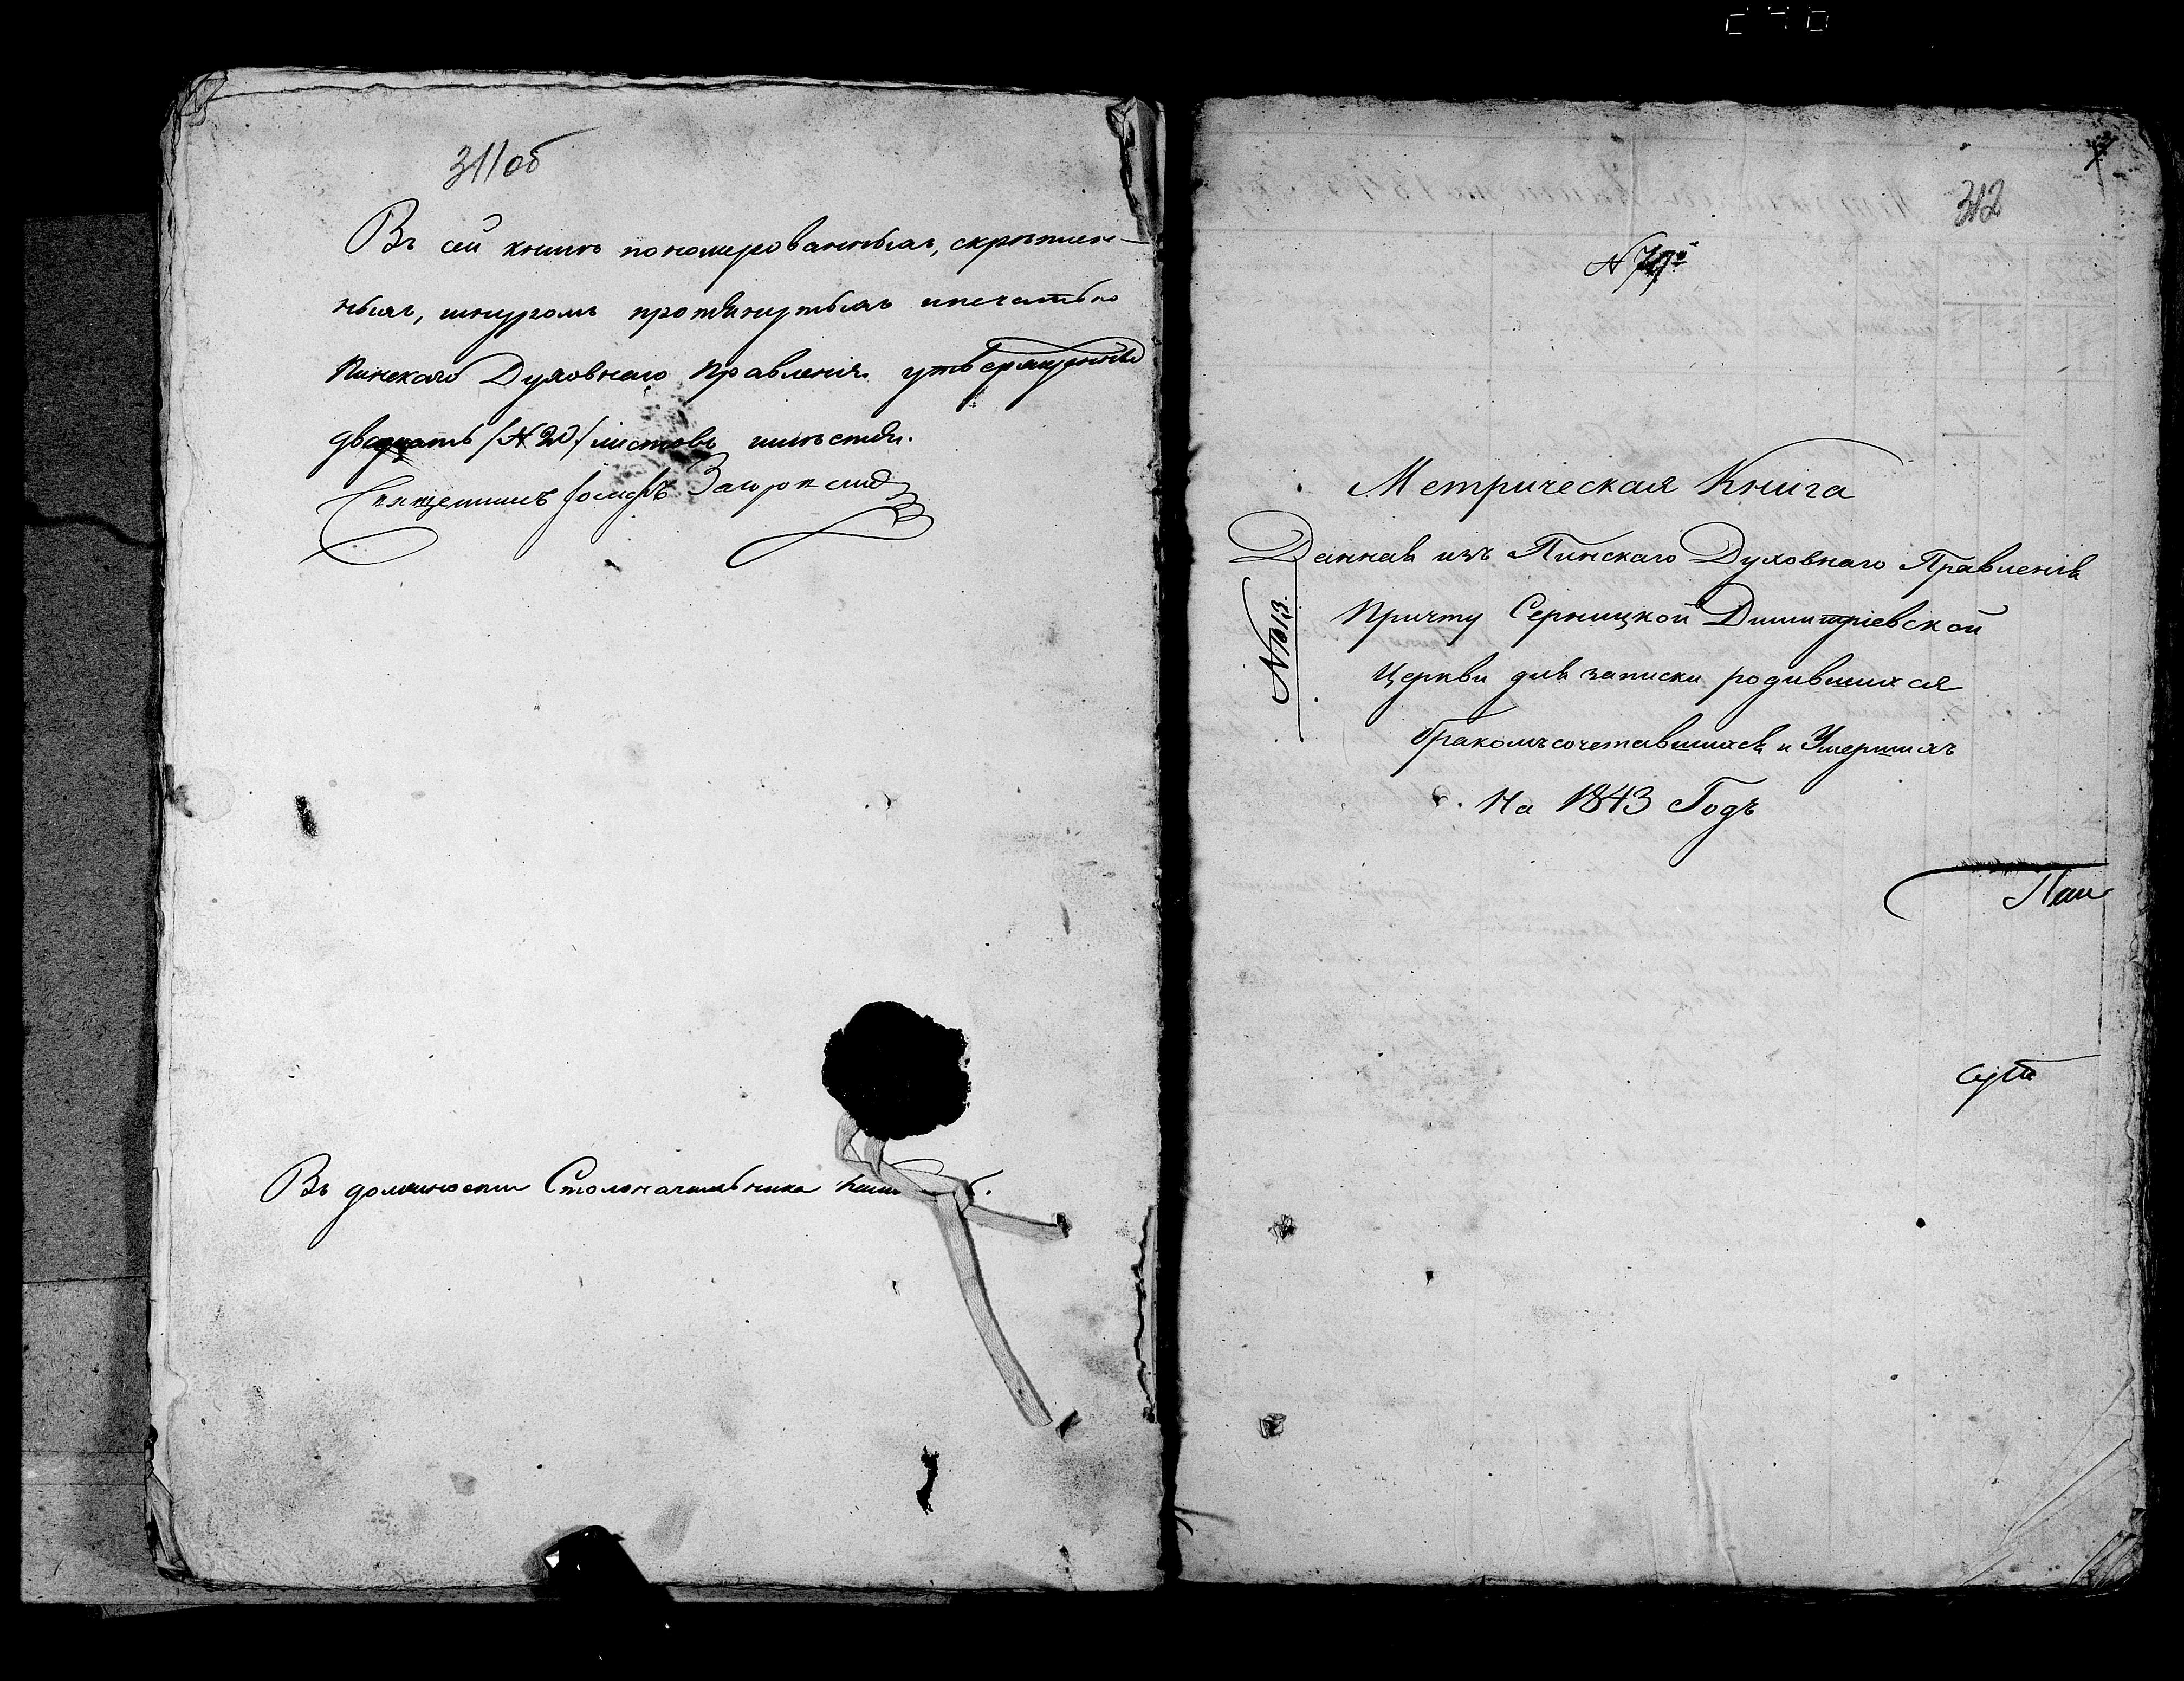 311об
Въ сей книгѣ пономерованныхъ, скрѣплен-
ныхъ, шнуромъ протянутыхъ и печатью
Пинскаго Духовнаго Правленія утвержденных
двадцать /№ 20/ листовъ
Священникъ Іосифъ
Въ должности Столоначальника
312
№
Метрическая Книга
Данная изъ Пинскаго Духовнаго Правленія
№ 1613.
Причту Серницкой Димитріевской
Церкви для записки родившихся
бракомъ сочетавшихся и Умершихъ
На 1843 Годъ